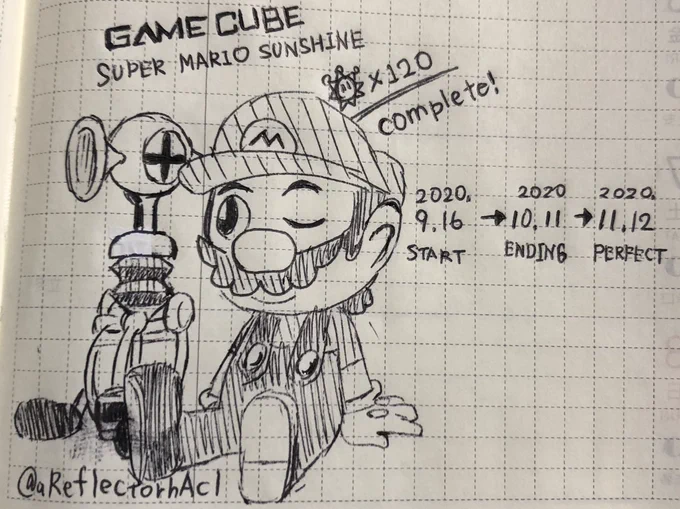 GAME CUBE
SUPER MARIO SUNSHINE
×120
complete!
M
2020. 2020 2020.
9.16 → 10.11 → 11.12
START ENDING PERFECT
@aReflectorhAcl